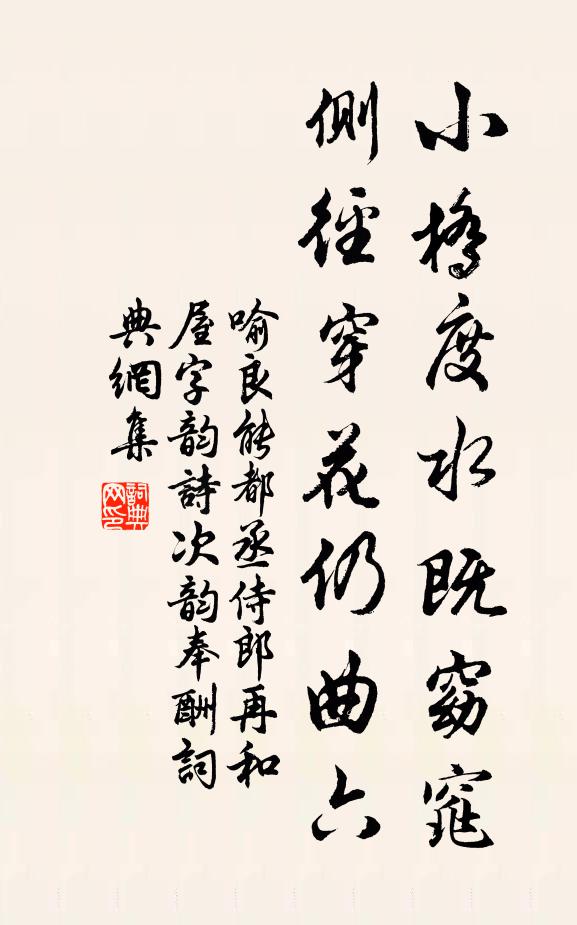 小橋度水既窈窕
側徑穿花仍曲六
喻良能都丞侍郎再和
屋字韵詩次韵奉酬詞
典網集
詞典網印